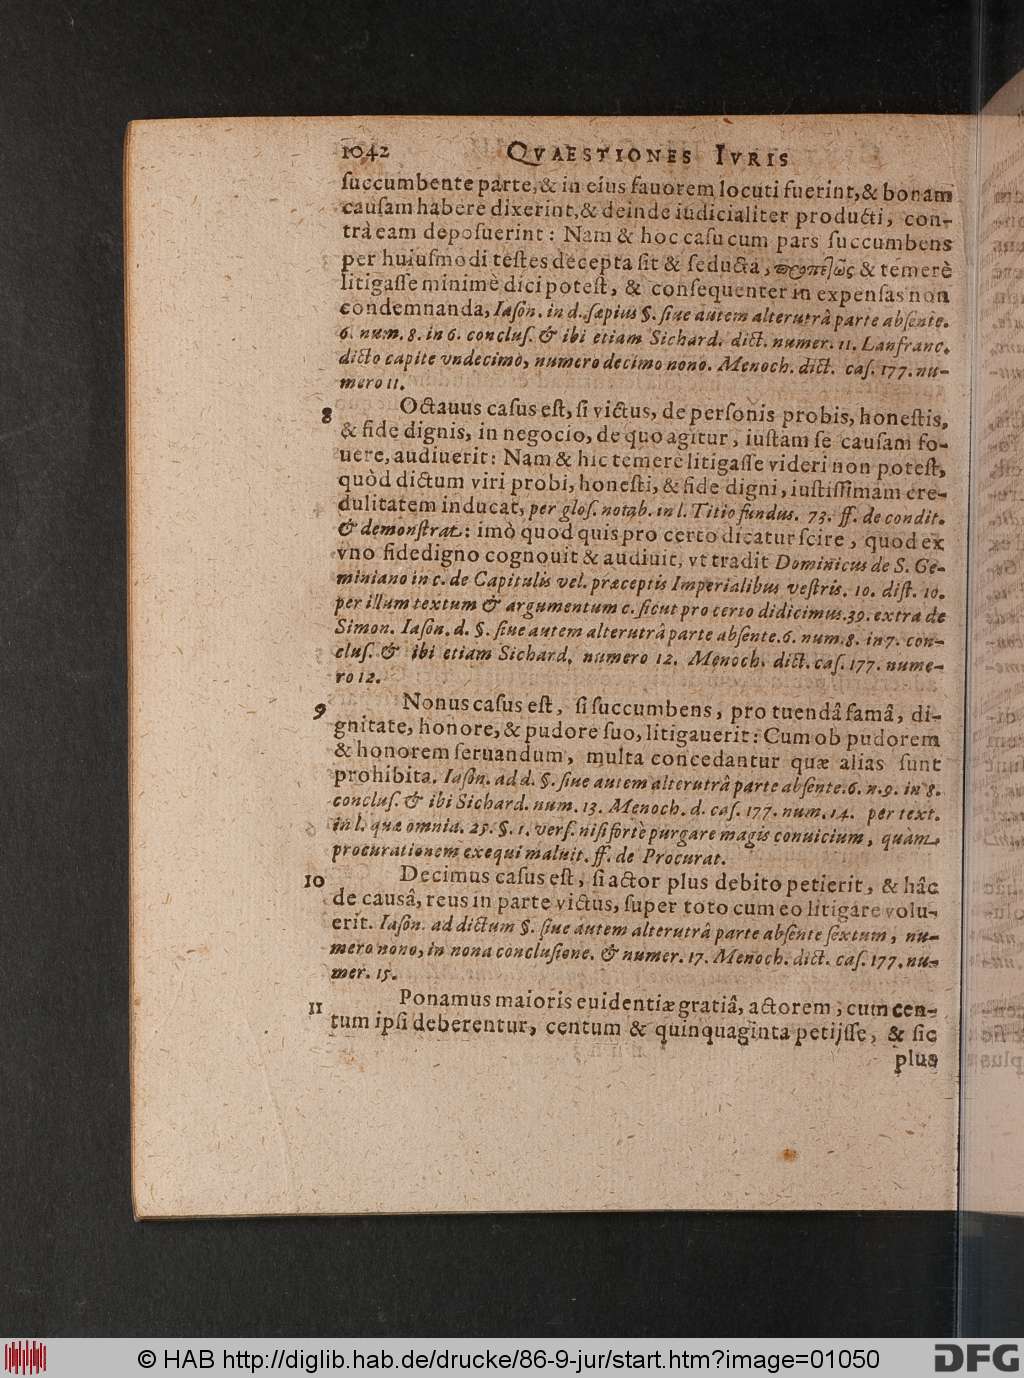 1042 QVAESTIONES IVRIS
ſuccumbente parte, & in eius fauorem locuti fuerint, & bonam
cauſam habere dixerint, & deinde iudicialiter producti, con-
trà eam depoſuerint: Nam & hoc caſu cum pars ſuccumbens
per huiuſmodi teſtes decepta ſit & ſeducta, & temerè
litigaſſe minimè dici poteſt, & conſequenter in expenſas non
condemnanda, Iaſon. in d. ſæpius §. ſiue autem alterutrâ parte abſente.
6. num. 8. in 6. concluſ. & ibi etiam Sichard. dict. numer. 11. Lanfranc.
dicto capite vndecimo, numero decimo nono. Menoch. dict. caſ. 177. nu-
mero 11.
8 Octauus caſus eſt, ſi victus, de perſonis probis, honeſtis,
& fide dignis, in negocio, de quo agitur, iuſtam ſe cauſam fo-
uere, audiuerit: Nam & hic temerè litigaſſe videri non poteſt,
quòd dictum viri probi, honeſti, & fide digni, iuſtiſſimam cre-
dulitatem inducat, per gloſ. notab. in l. Titio fundus. 73. ff. de condit.
& demonſtrat.: imò quod quis pro certo dicatur ſcire, quod ex
vno fidedigno cognouit & audiuit, vt tradit Dominicus de S. Ge-
miniano in c. de Capitulis vel. præceptis Imperialibus veſtris. 10. diſt. 10.
per illum textum & argumentum c. ſicut pro certo didicimus. 39. extra de
Simon. Iaſon. d. §. ſiue autem alterutrâ parte abſente. 6. num. 8. in 7. con-
cluſ. & ibi etiam Sichard, numero 12. Menoch. dict. caſ. 177. nume-
ro 12.
9 Nonus caſus eſt, ſi ſuccumbens, pro tuendâ famâ, di-
gnitate, honore, & pudore ſuo, litigauerit: Cum ob pudorem
& honorem ſeruandum, multa concedantur quæ alias ſunt
prohibita. Iaſon. ad d. §. ſiue autem alterutrâ parte abſente. 6. n. 9. in 8.
concluſ. & ibi Sichard. num. 13. Menoch. d. caſ. 177. num. 14. per text.
in l. quæ omnia. 25. §. 1. verſ. niſi fortè purgare magis conuicium, quàm
procurationem exequi maluit. ff. de Procurat.
10 Decimus caſus eſt, ſi actor plus debito petierit, & hâc
de causâ, reus in parte victus, ſuper toto cum eo litigare volu-
erit. Iaſon. ad dictum §. ſiue autem alterutrâ parte abſente ſextum, nu-
mero nono, in nona concluſione. & numer. 17. Menoch. dict. caſ. 177. nu-
mer. 15.
11 Ponamus maioris euidentiæ gratiâ, actorem, cum cen-
tum ipſi deberentur, centum & quinquaginta petijſſe, & ſic
plus
© HAB http://diglib.hab.de/drucke/86-9-jur/start.htm?image=01050
DFG